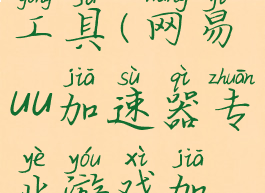 工具(网易
jiā sù qì zhuān
uu加速器专
yè yóu xì jiā
业游戏加